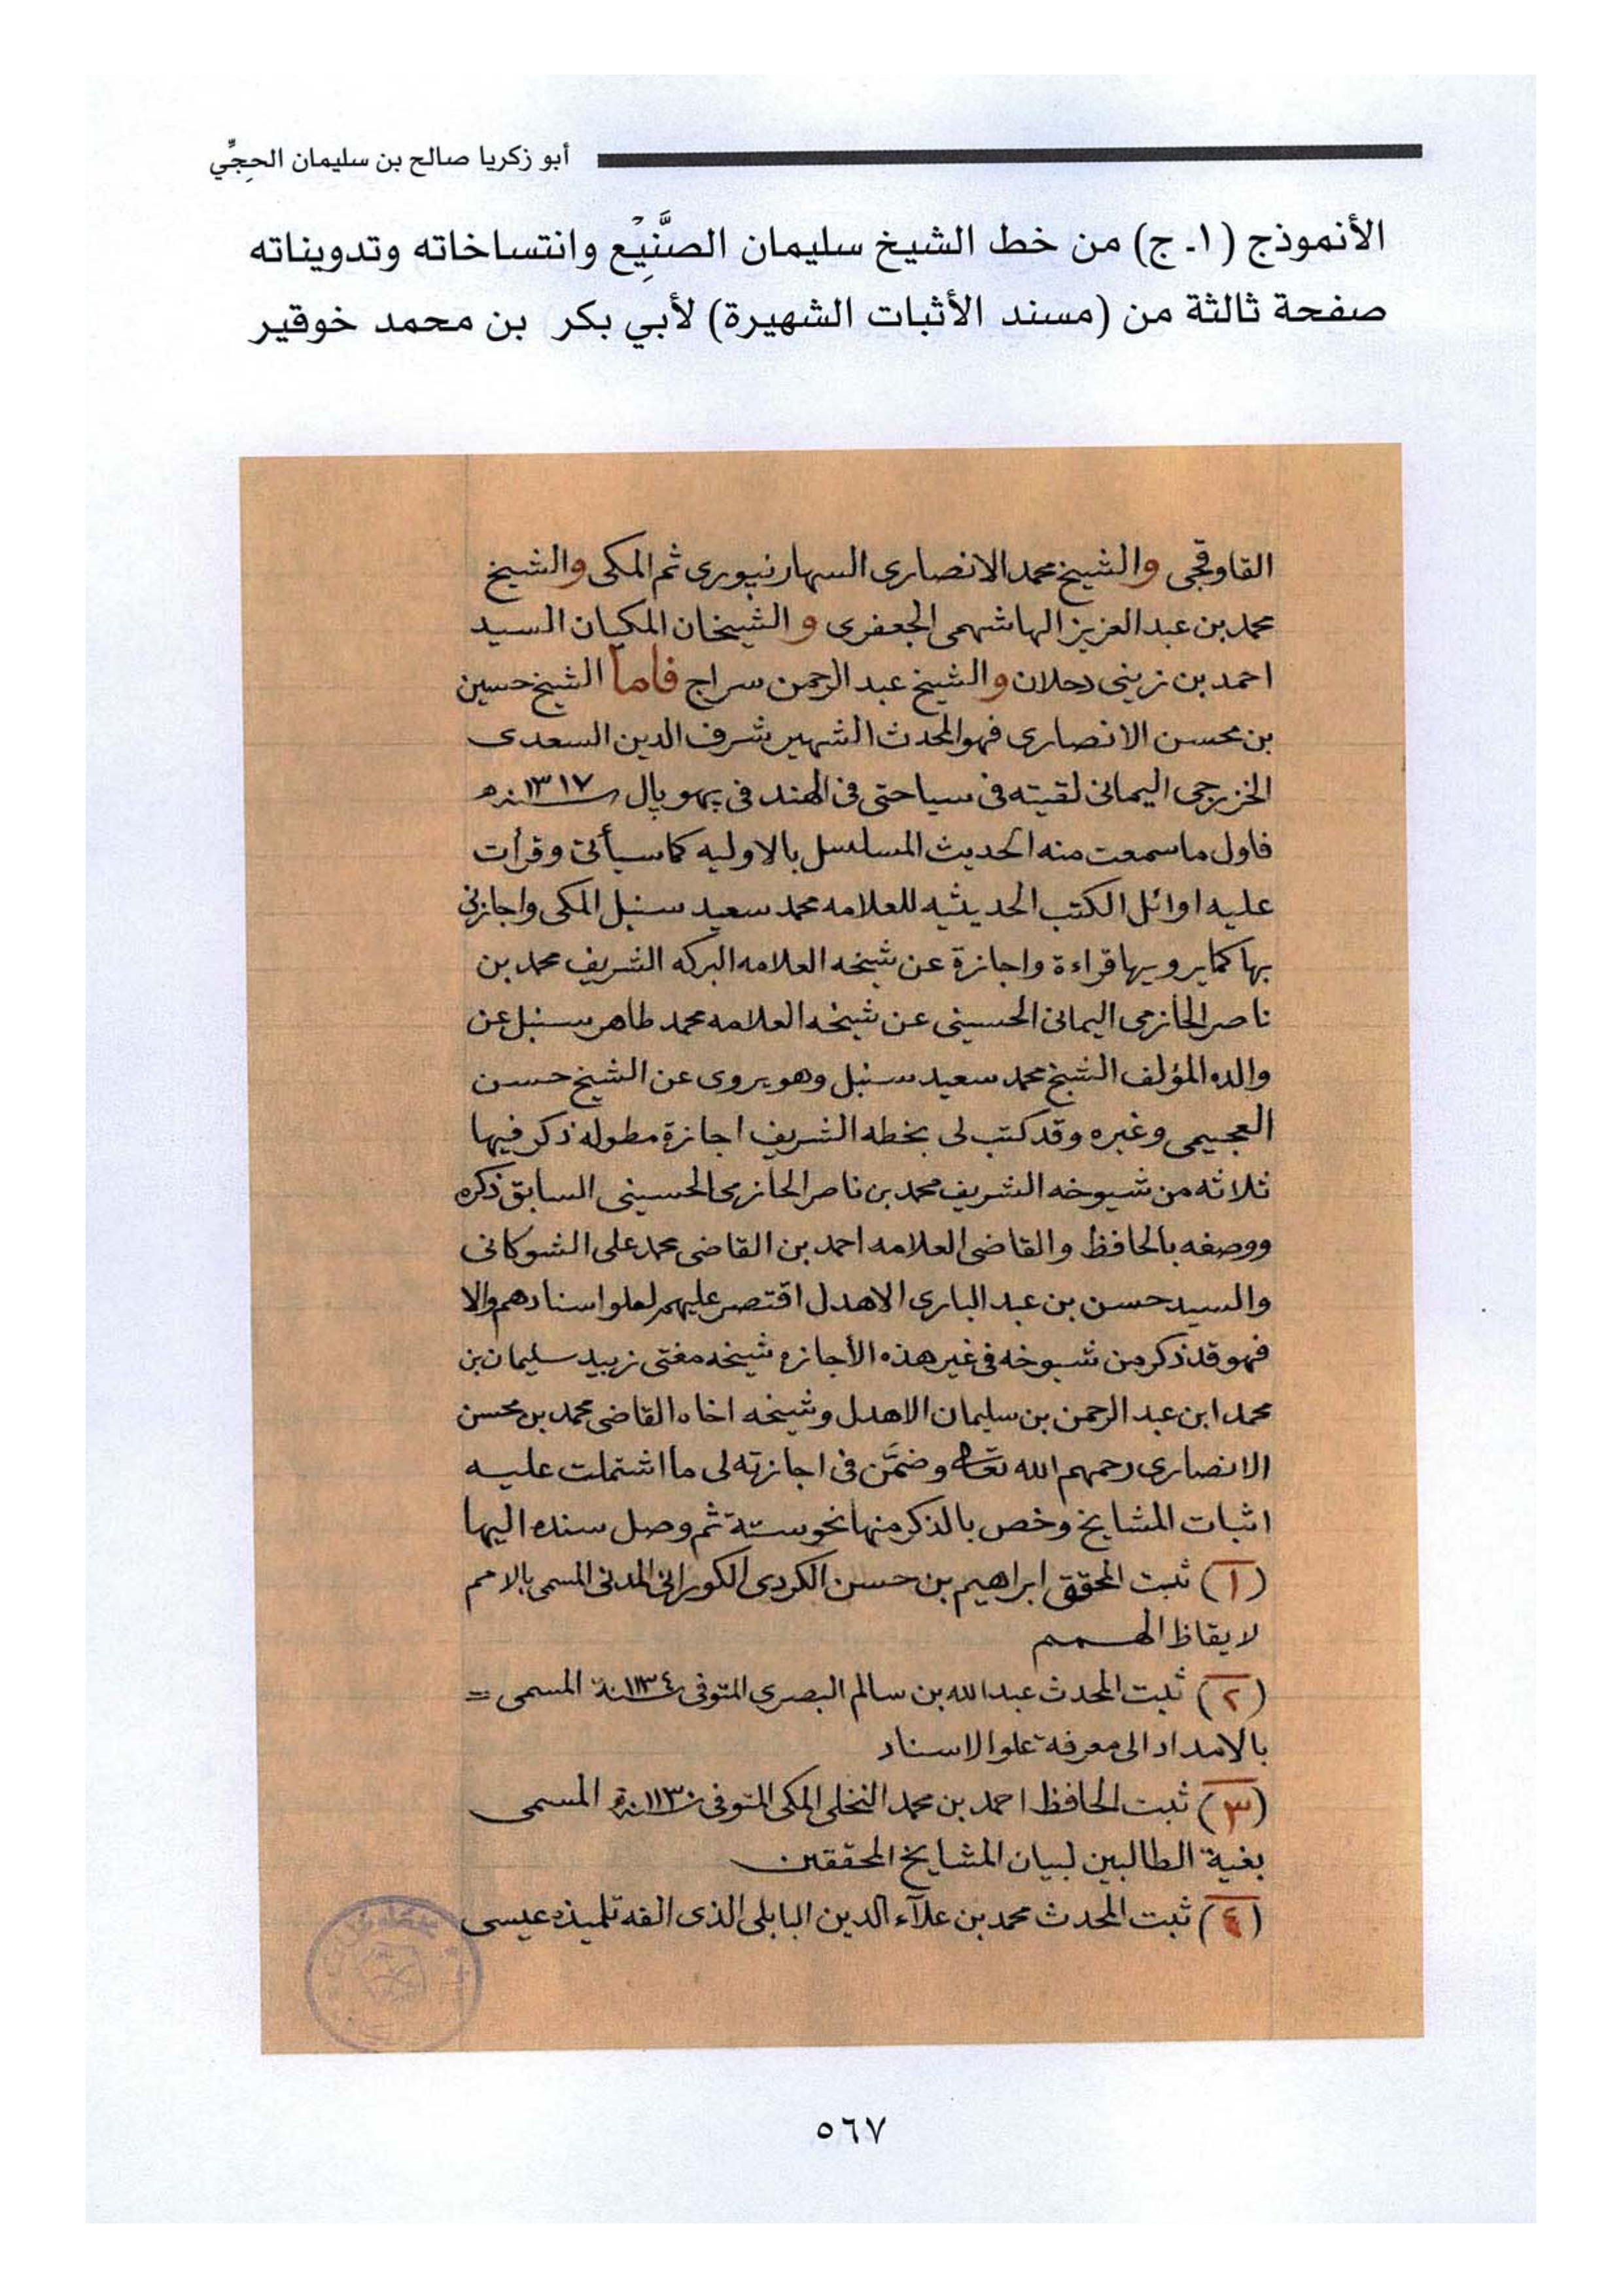 أبو زكريا صالح بن سليمان الحجِّي
الأنموذج (١ـ ج) من خط الشيخ سليمان الصَّنِيْع وانتساخاته وتدويناته
صفحة ثالثة من (مسند الأثبات الشهيرة) لأبي بكر بن محمد خوقير
القاوقجى والشيخ محمد الانصارى السهارنپورى ثم المكى والشيخ
محمد بن عبد العزيز الهاشمى الجعفرى و الشيخان المكيان السيد
احمد بن زينى دحلان والشيخ عبد الرحمن سراج فاما الشيخ حسين
بن محسن الانصارى فهو المحدث الشهير شرف الدين السعدى
الخزرجى اليمانى لقيته فى سياحتى فى الهند فى بهوپال سنه ١٣١٧ه
فاول ما سمعت منه الحديث المسلسل بالاوليه كما سيأتى وقرأت
عليه اوائل الكتب الحديثيه للعلامه محمد سعيد سنبل المكى واجازنى
بها كما يرويها قراءة واجازة عن شيخه العلامه البركه الشريف محمد بن
ناصر الحازمى اليمانى الحسينى عن شيخه العلامه محمد طاهر سنبل عن
والده المؤلف الشيخ محمد سعيد سنبل وهو يروى عن الشيخ حسن
العجيمى وغيره وقد كتب لى بخطه الشريف اجازة مطوله ذكر فيها
ثلاثه من شيوخه الشريف محمد بن ناصر الحازمى الحسينى السابق ذكره
ووصفه بالحافظ والقاضى العلامه احمد بن القاضى محمد على الشوكانى
والسيد حسن بن عبد البارى الاهدل اقتصر عليهم لعلو اسنادهم والا
فهو قد ذكر من شيوخه فى غير هذه الأجازه شيخه مفتى زبيد سليمان بن
محمد ابن عبد الرحمن بن سليمان الاهدل وشيخه اخاه القاضى محمد بن محسن
الانصارى رحمهم الله تعالى وضمَّن فى اجازته لى ما اشتملت عليه
اثبات المشايخ وخص بالذكر منها نحو ستة ثم وصل سنده اليها
(١) ثبت المحقق ابراهيم بن حسن الكردى الكورانى المدنى المسمى بالامم
لايقاظ الهمم
(٢) ثبت المحدث عبد الله بن سالم البصرى المتوفى سنة ١١٣٤ المسمى =
بالامداد الى معرفة علو الاسناد
(٣) ثبت الحافظ احمد بن محمد النخلى المكى المتوفى سنة ١١٣٠ه المسمى
بغية الطالبين لبيان المشايخ المحققين
(٤) ثبت المحدث محمد بن علآء الدين البابلى الذى الفه تلميذه عيسى
٥٦٧